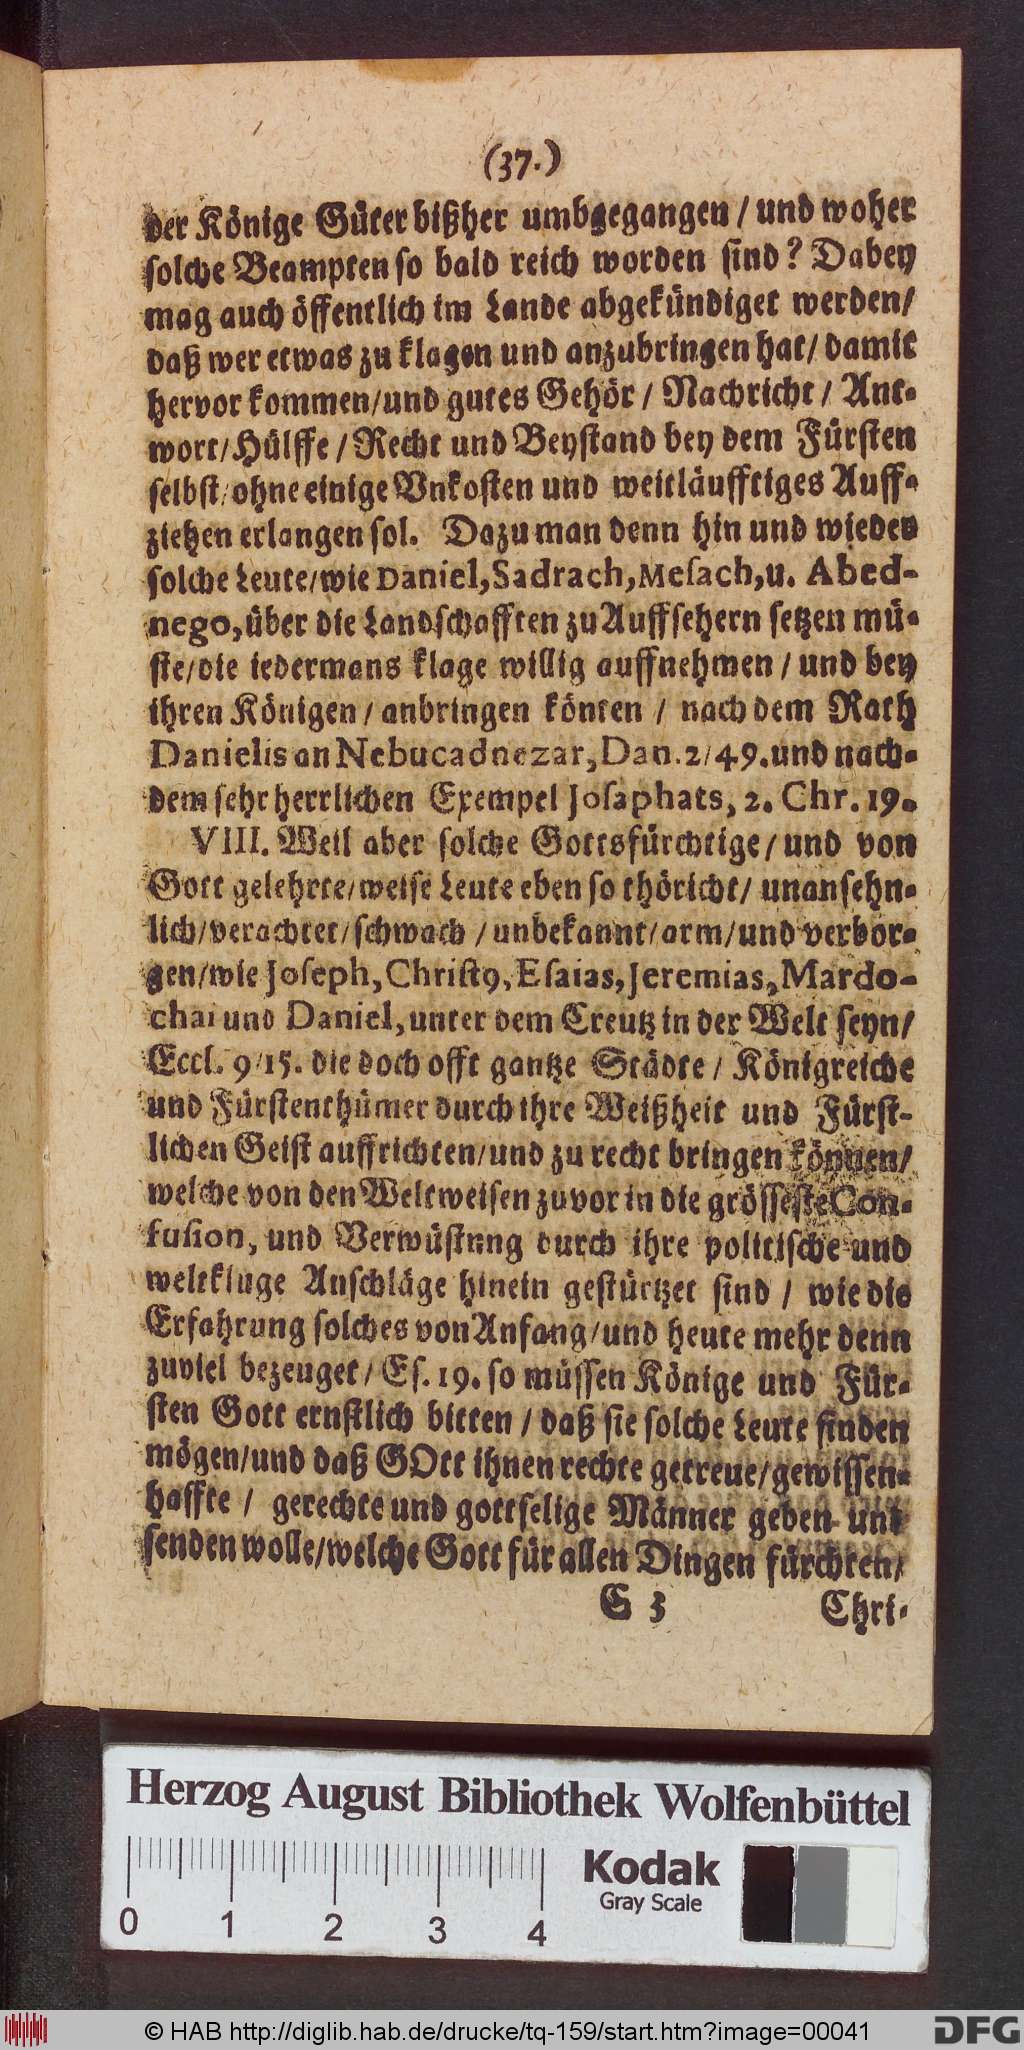 (37.)
der Könige Güter bißher umbgegangen / und woher
solche Beampten so bald reich worden sind? Dabey
mag auch öffentlich im Lande abgekündiget werden/
daß wer etwas zu klagen und anzubringen hat/ damit
hervor kommen/und gutes Gehör / Nachricht / Ant-
wort/ Hülffe / Recht und Beystand bey dem Fürsten
selbst/ohne einige Vnkosten und weitläufftiges Auff-
ziehen erlangen sol. Dazu man denn hin und wieder
solche Leute/wie Daniel, Sadrach, Mesach, u. Abed-
nego, über die Landschafften zu Auffsehern setzen mü-
ste/die iedermans klage willig auffnehmen / und bey
ihren Königen / anbringen könten / nach dem Rath
Danielis an Nebucadnezar, Dan. 2/49. und nach-
dem sehr herrlichen Exempel Josaphats, 2. Chr. 19.
VIII. Weil aber solche Gottsfürchtige / und von
Gott gelehrte/weise Leute eben so thöricht/ unansehn-
lich/verachtet/schwach / unbekannt/arm/und verbor-
gen/wie Joseph, Christ9, Esaias, Jeremias, Mardo-
chai und Daniel, unter dem Creutz in der Welt seyn/
Eccl. 9/15. die doch offt gantze Städte / Königreiche
und Fürstenthümer durch ihre Weißheit und Fürst-
lichen Geist auffrichten/und zu recht bringen können/
welche von den Weltweisen zuvor in die grösseste Con-
fusion, und Verwüstung durch ihre politische und
weltkluge Anschläge hinein gestürtzet sind / wie die
Erfahrung solches von Anfang/und heute mehr denn
zuviel bezeuget / Es. 19. so müssen Könige und Für-
sten Gott ernstlich bitten / daß sie solche Leute finden
mögen/und daß GOtt ihnen rechte getreue/gewissen-
haffte / gerechte und gottselige Männer geben und
senden wolle/welche Gott für allen Dingen fürchten/
G 3 Chri-
Herzog August Bibliothek Wolfenbüttel
0 1 2 3 4
Kodak
Gray Scale
© HAB http://diglib.hab.de/drucke/tq-159/start.htm?image=00041
DFG